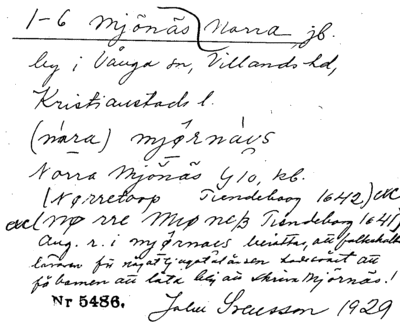 1-6 Mjönäs Norra, jb.
by i Vånga sn, Villands hd,
Kristianstads l.
(nára) mjørnävs
Norra Mjönäs G10, kb.
(Nørretoop Tiendebog 1642)
(Nø rre Miøneß Tiendebog 1641)
Aug. r. i mjørnaes berätta, att folkskol
läraren för något tjugotal år sen
få barnen att låta bli att skriva Mjörnäs!
Nr 5486.
John Svensson 1929